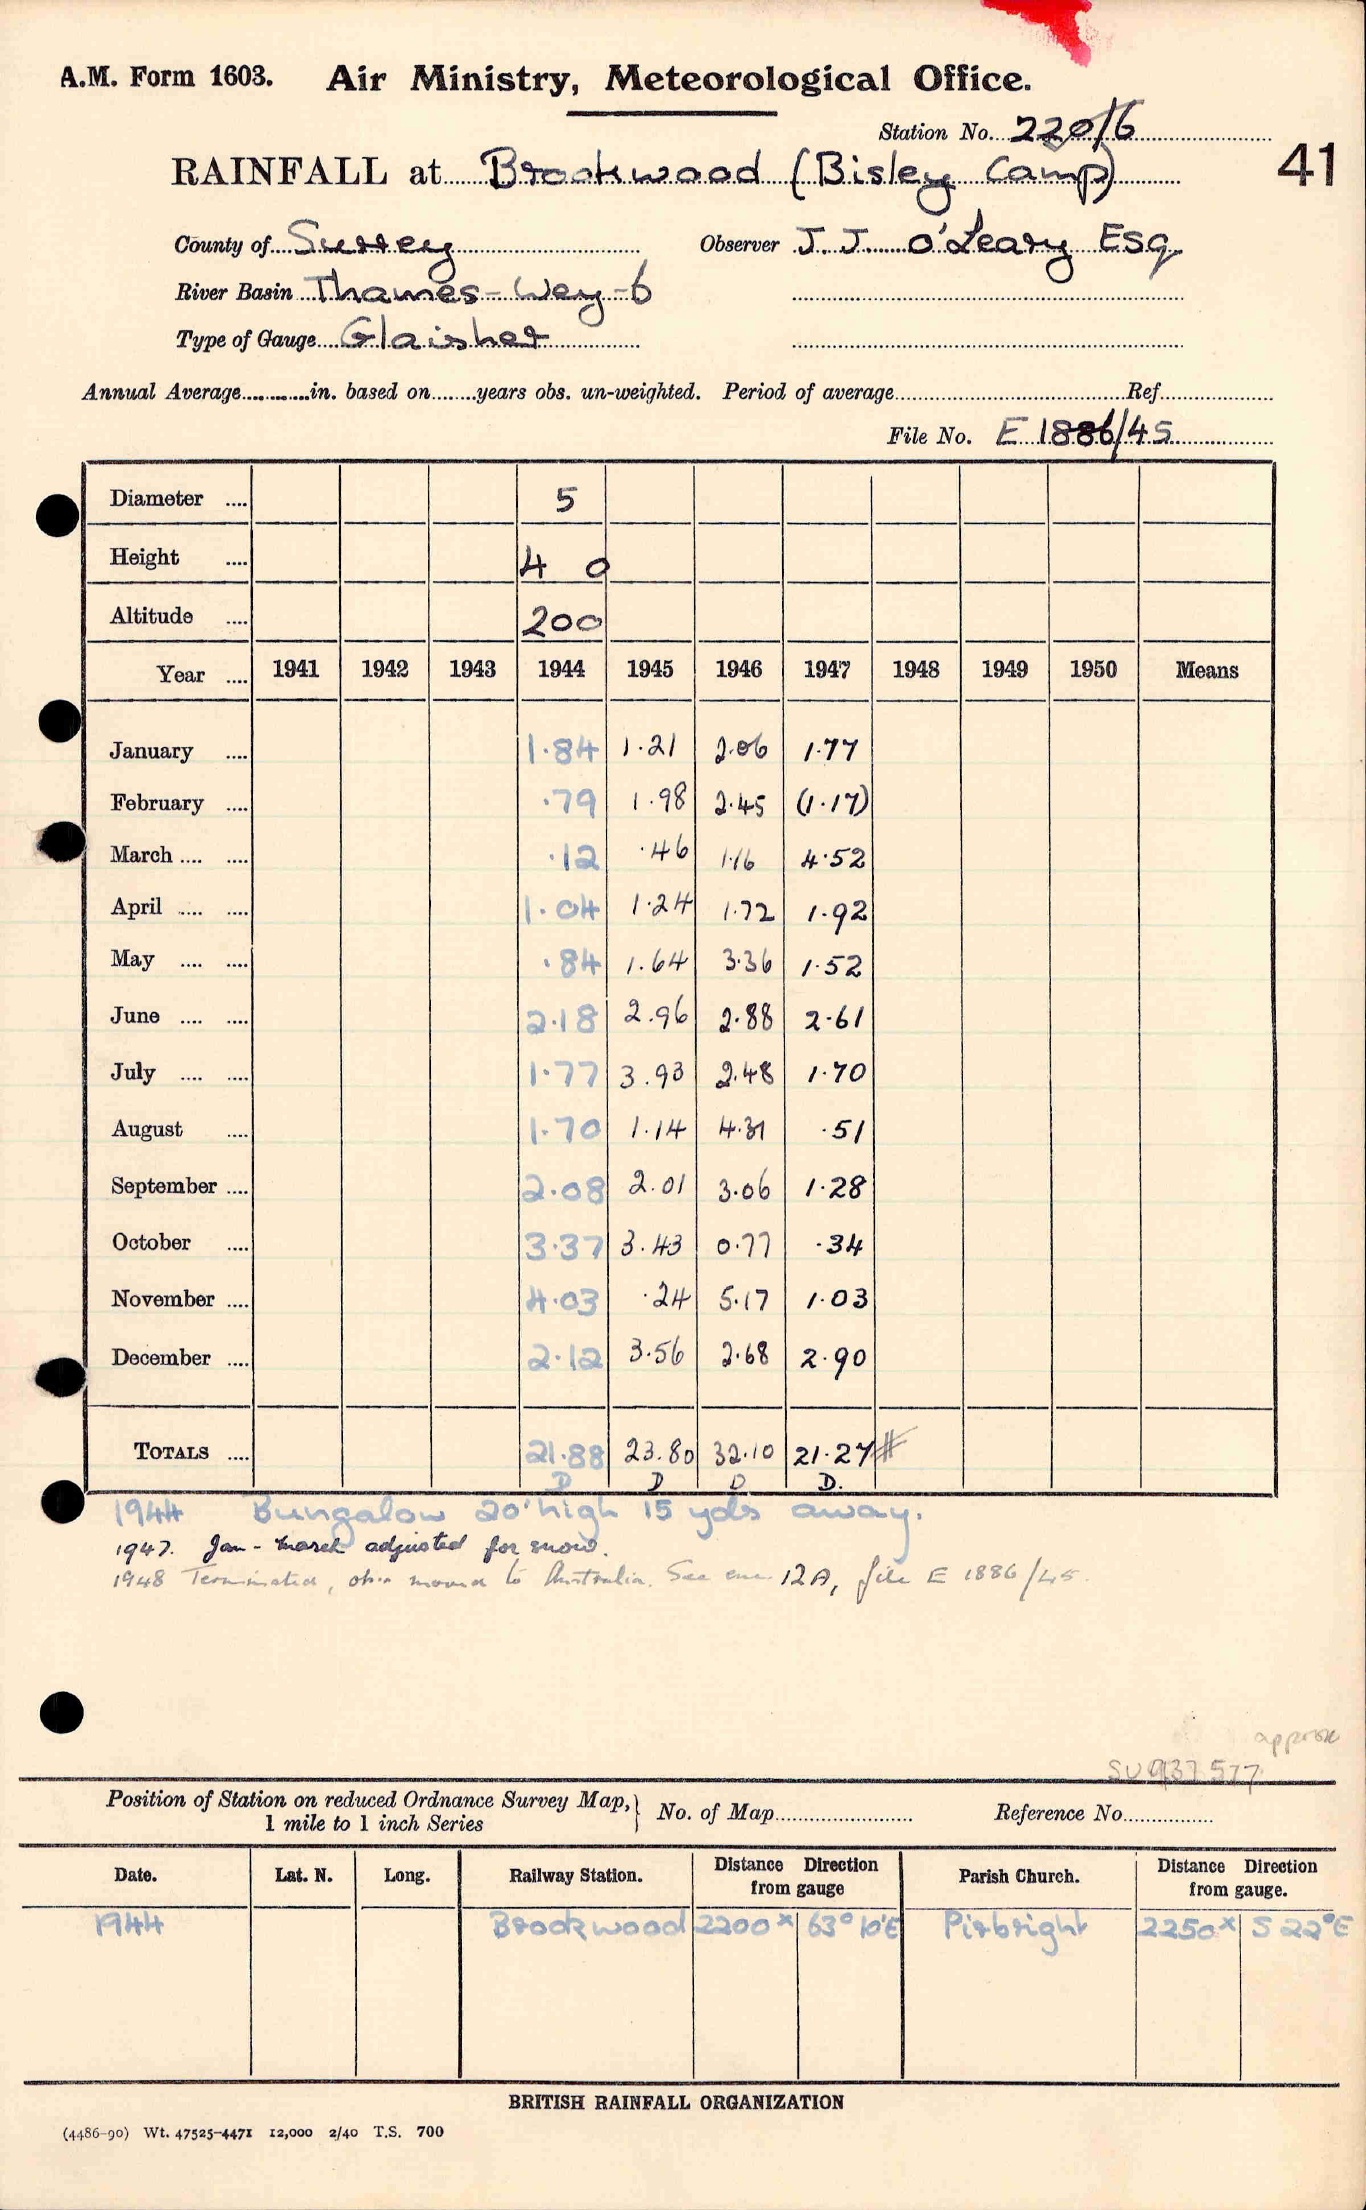 A.M. Form 1603. Air Ministry, Meteorological Office.
Station No. 220/6
41
RAINFALL at Brookwood (Bisley Camp)
County of Surrey Observer J. J. O'Leary Esq
River Basin Thames-Wey-6
Type of Gauge Glaisher
Annual Average............in. based on........years obs. un-weighted. Period of average............Ref............
File No. E 1886/45
Diameter .... 5
Height .... 4 0
Altitude .... 200
Year .... 1941 1942 1943 1944 1945 1946 1947 1948 1949 1950 Means
January .... 1.84 1.21 2.06 1.77
February .... .79 1.98 2.45 (1.17)
March .... .... .12 .46 1.16 4.52
April .... .... 1.04 1.24 1.72 1.92
May .... .... .84 1.64 3.36 1.52
June .... .... 2.18 2.96 2.88 2.61
July .... .... 1.77 3.93 2.48 1.70
August .... 1.70 1.14 4.31 .51
September .... 2.08 2.01 3.06 1.28
October .... 3.37 3.43 0.77 .34
November .... 4.03 .24 5.17 1.03
December .... 2.12 3.56 2.68 2.90
TOTALS .... 21.88 23.80 32.10 21.27 #
D D D D.
1944 Bungalow 20' high 15 yds away.
1947. Jan - March adjusted for snow.
1948 Terminated, obsr moved to Australia. See enc. 12A, file E 1886/45.
approx
SU 937 577
Position of Station on reduced Ordnance Survey Map, } No. of Map............ Reference No............
1 mile to 1 inch Series
Date. Lat. N. Long. Railway Station. Distance Direction from gauge Parish Church. Distance Direction from gauge.
1944 Brookwood 2200x 63° 10'E Pirbright 2250x S 22° E
BRITISH RAINFALL ORGANIZATION
(4486-90) Wt. 47525-4471 12,000 2/40 T.S. 700